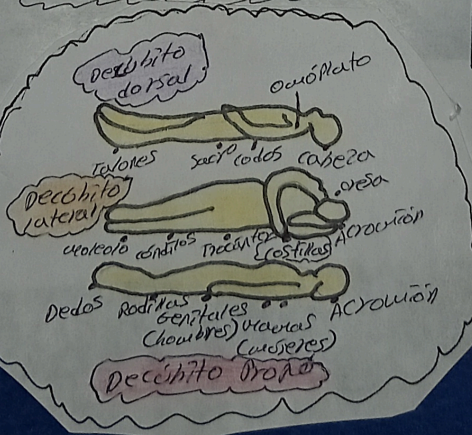 Decúbito
dorsal
Omóplato
Talones Sacro codos cabeza
Decúbito
lateral
oreja
Acromión
cóndilos
(costillas)
Dedos Rodillas
Genitales
(hombres)
(mujeres)
Acromión
Decúbito Prono